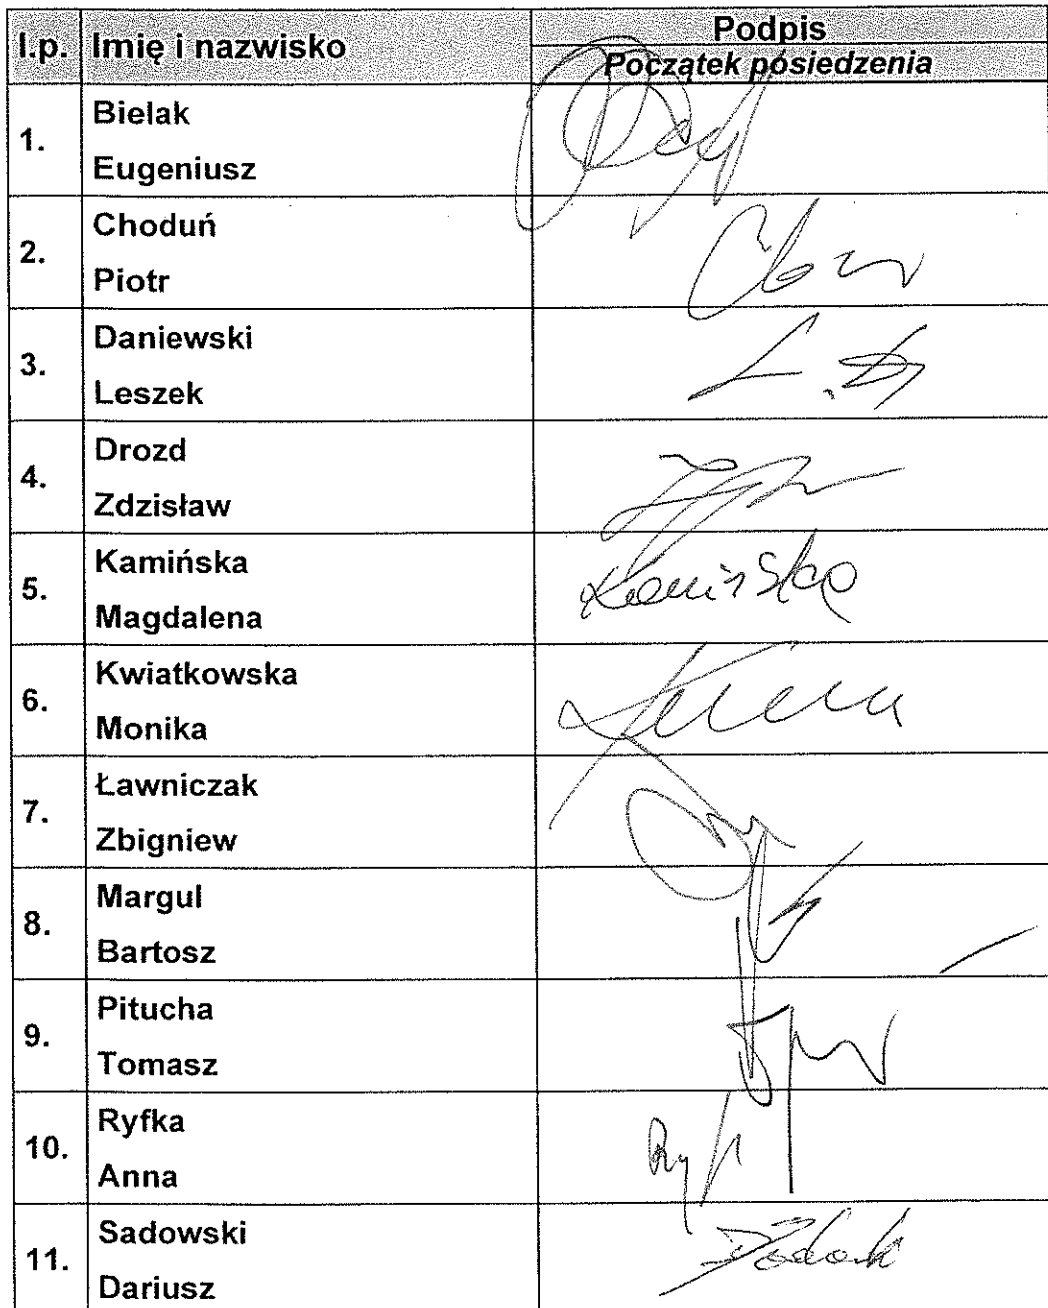 l.p. Imię i nazwisko Podpis
Początek posiedzenia
1. Bielak
Eugeniusz
2. Choduń
Piotr
3. Daniewski
Leszek
L. D
4. Drozd
Zdzisław
5. Kamińska
Magdalena
Kamińska
6. Kwiatkowska
Monika
7. Ławniczak
Zbigniew
8. Margul
Bartosz
9. Pitucha
Tomasz
10. Ryfka
Anna
11. Sadowski
Dariusz